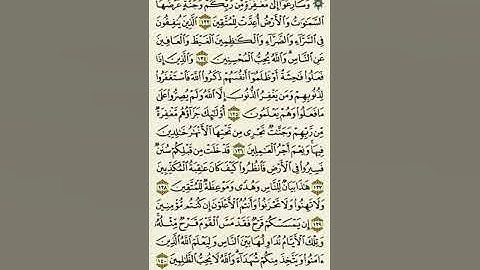 ۞ وَسَارِعُوٓا۟ إِلَىٰ مَغْفِرَةٍ مِّن رَّبِّكُمْ وَجَنَّةٍ عَرْضُهَا
ٱلسَّمَٰوَٰتُ وَٱلْأَرْضُ أُعِدَّتْ لِلْمُتَّقِينَ ١٣٣ ٱلَّذِينَ يُنفِقُونَ
فِى ٱلسَّرَّآءِ وَٱلضَّرَّآءِ وَٱلْكَٰظِمِينَ ٱلْغَيْظَ وَٱلْعَافِينَ
عَنِ ٱلنَّاسِ وَٱللَّهُ يُحِبُّ ٱلْمُحْسِنِينَ ١٣٤ وَٱلَّذِينَ إِذَا
فَعَلُوا۟ فَٰحِشَةً أَوْ ظَلَمُوٓا۟ أَنفُسَهُمْ ذَكَرُوا۟ ٱللَّهَ فَٱسْتَغْفَرُوا۟
لِذُنُوبِهِمْ وَمَن يَغْفِرُ ٱلذُّنُوبَ إِلَّا ٱللَّهُ وَلَمْ يُصِرُّوا۟ عَلَىٰ
مَا فَعَلُوا۟ وَهُمْ يَعْلَمُونَ ١٣٥ أُو۟لَٰٓئِكَ جَزَآؤُهُم مَّغْفِرَةٌ
مِّن رَّبِّهِمْ وَجَنَّٰتٌ تَجْرِى مِن تَحْتِهَا ٱلْأَنْهَٰرُ خَٰلِدِينَ
فِيهَا وَنِعْمَ أَجْرُ ٱلْعَٰمِلِينَ ١٣٦ قَدْ خَلَتْ مِن قَبْلِكُمْ سُنَنٌ
فَسِيرُوا۟ فِى ٱلْأَرْضِ فَٱنظُرُوا۟ كَيْفَ كَانَ عَٰقِبَةُ ٱلْمُكَذِّبِينَ
١٣٧ هَٰذَا بَيَانٌ لِّلنَّاسِ وَهُدًى وَمَوْعِظَةٌ لِّلْمُتَّقِينَ ١٣٨
وَلَا تَهِنُوا۟ وَلَا تَحْزَنُوا۟ وَأَنتُمُ ٱلْأَعْلَوْنَ إِن كُنتُم مُّؤْمِنِينَ
١٣٩ إِن يَمْسَسْكُمْ قَرْحٌ فَقَدْ مَسَّ ٱلْقَوْمَ قَرْحٌ مِّثْلُهُۥ
وَتِلْكَ ٱلْأَيَّامُ نُدَاوِلُهَا بَيْنَ ٱلنَّاسِ وَلِيَعْلَمَ ٱللَّهُ ٱلَّذِينَ
ءَامَنُوا۟ وَيَتَّخِذَ مِنكُمْ شُهَدَآءَ وَٱللَّهُ لَا يُحِبُّ ٱلظَّٰلِمِينَ ١٤٠